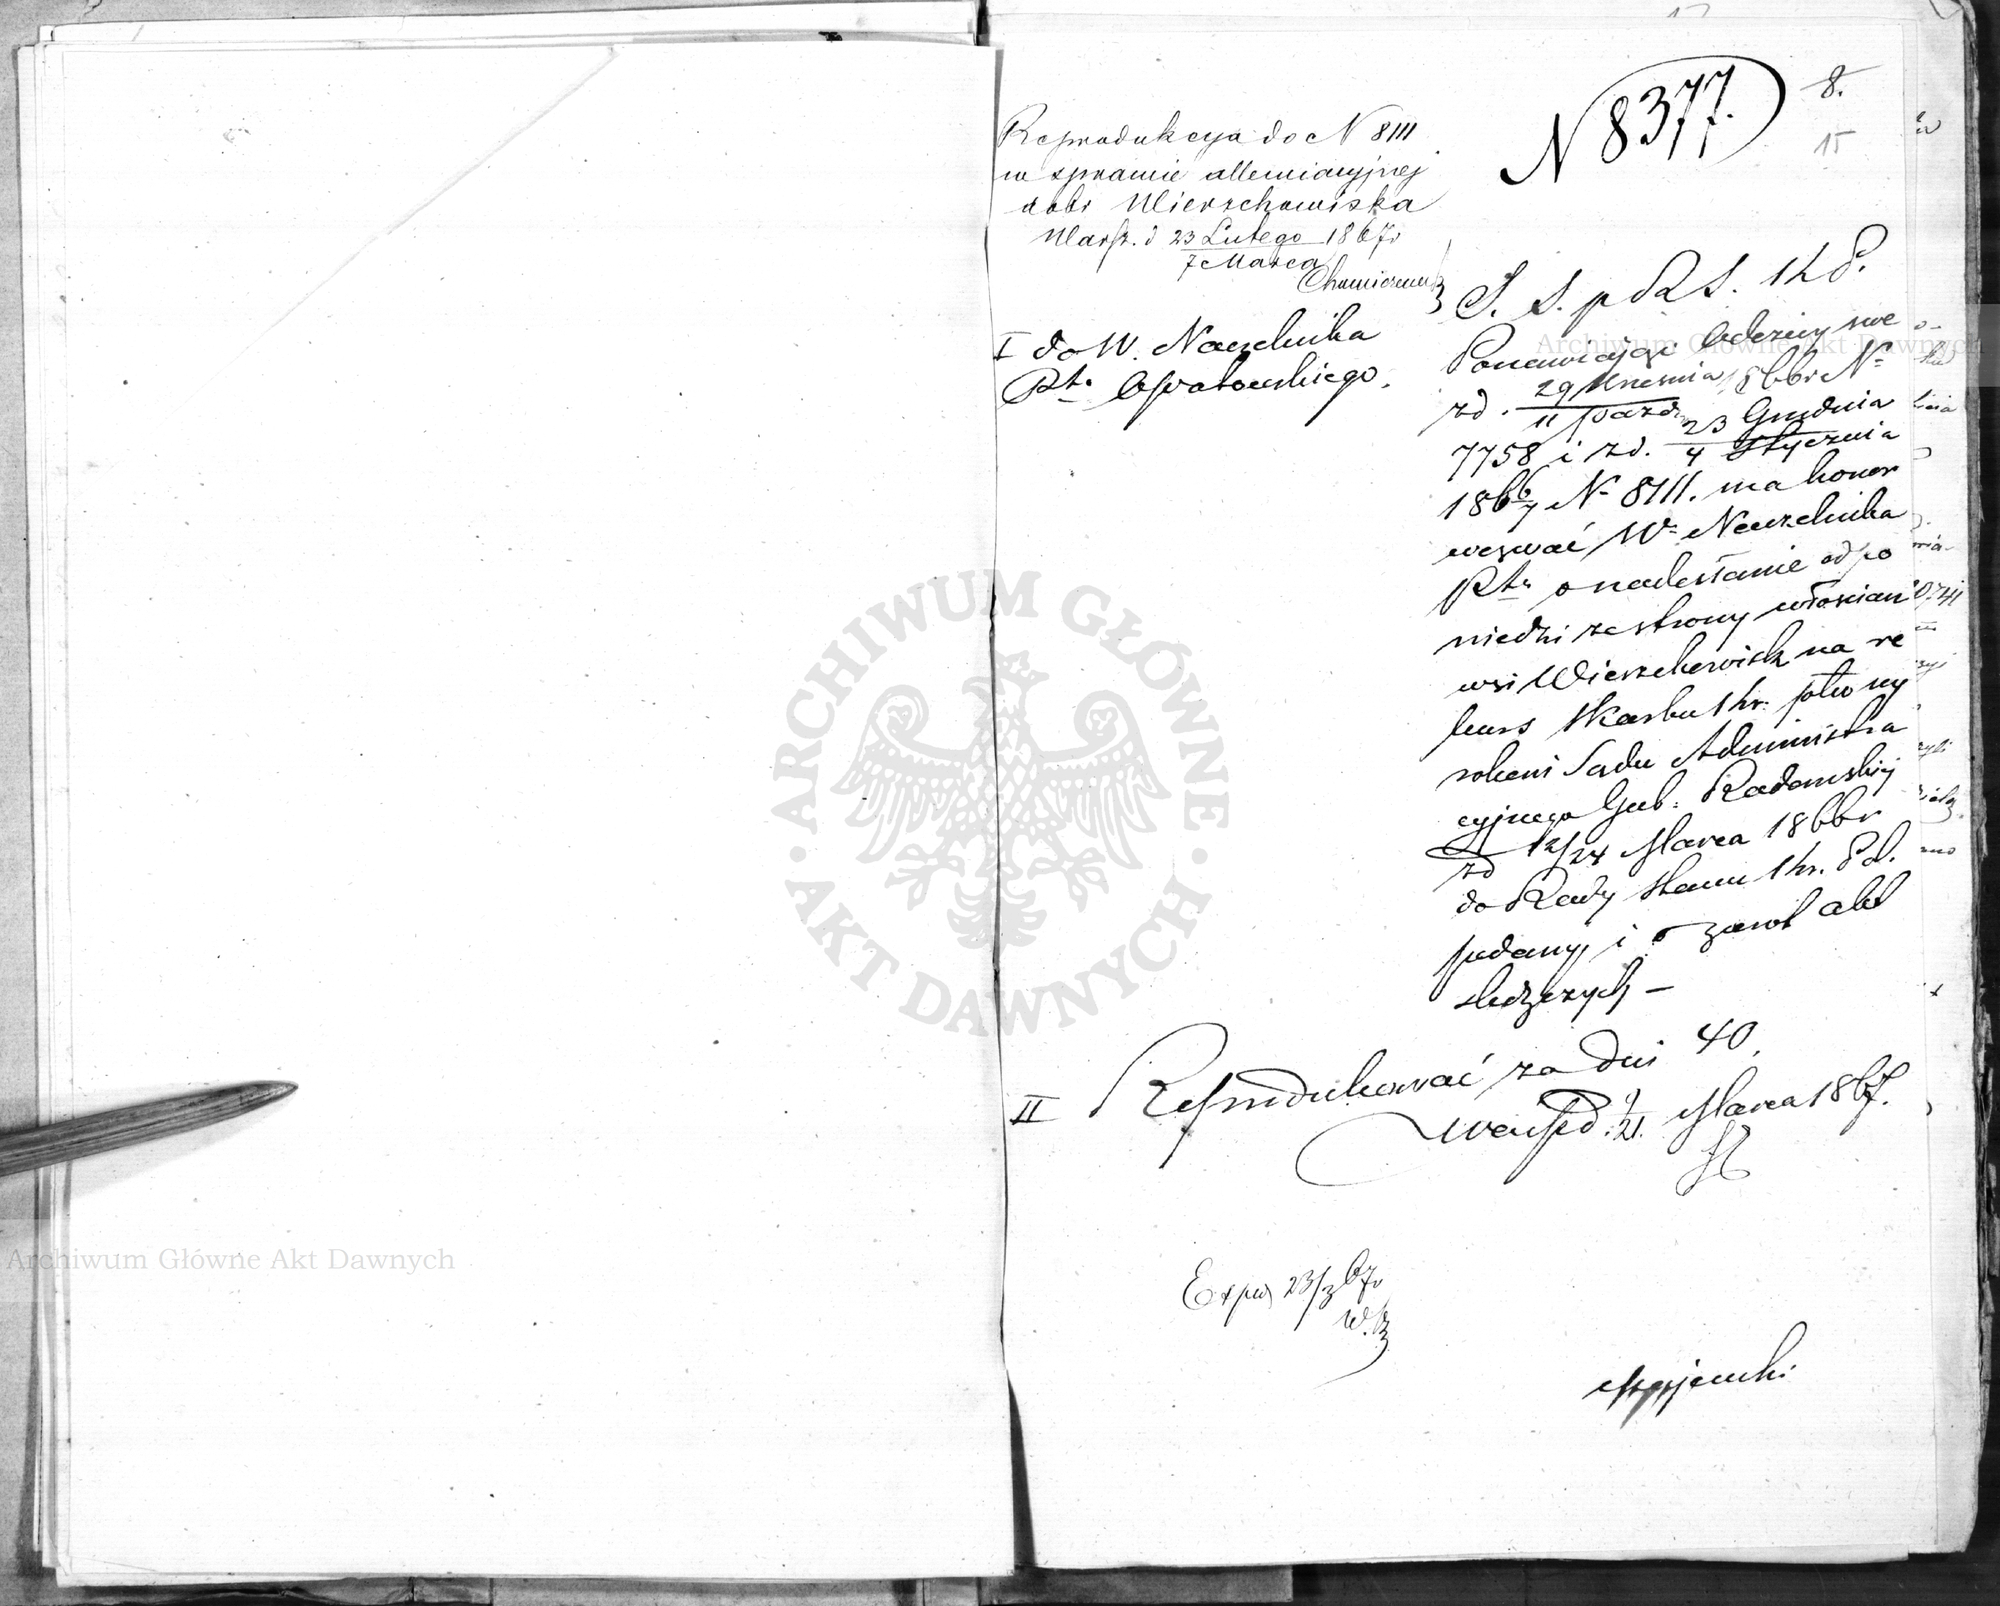 N 8377.
8.
15
Reprodukcya do N 8111
w sprawie allewiacyjnej
dobr Wierzchowiska
Warsz. d 23 Lutego 1867r
7 Marca
I do W. Naczelnika
Ptu Opatowskiego.
S. S. p R S. 1 K P.
Ponawiając Odezwy swe
zd. 29 Wrzesnia 1866r No
11 pazdr
7758 i zd. 23 Grudnia
4 Stycznia
1866/7 N 8111. ma honor
wezwać Wo Naczelnika
Ptu o nadesłanie odpo
wiedzi ze strony włoscian
wsi Wierzchowisk na re
kurs Skarbu Kr. ptko wy
rokowi Sadu Administra
cyjnego Gub: Radomskiej
zd 12/24 Marca 1866r
do Rady Stanu Kr. Pol.
podany, i o zwrot akt
sledczych —
II Reprodukować za dni 40,
Warsz d. 9/21. Marca 1867.
Exped 23/3 67r
Archiwum Główne Akt Dawnych
Archiwum Główne Akt Dawnych
ARCHIWUM GŁÓWNE
AKT DAWNYCH